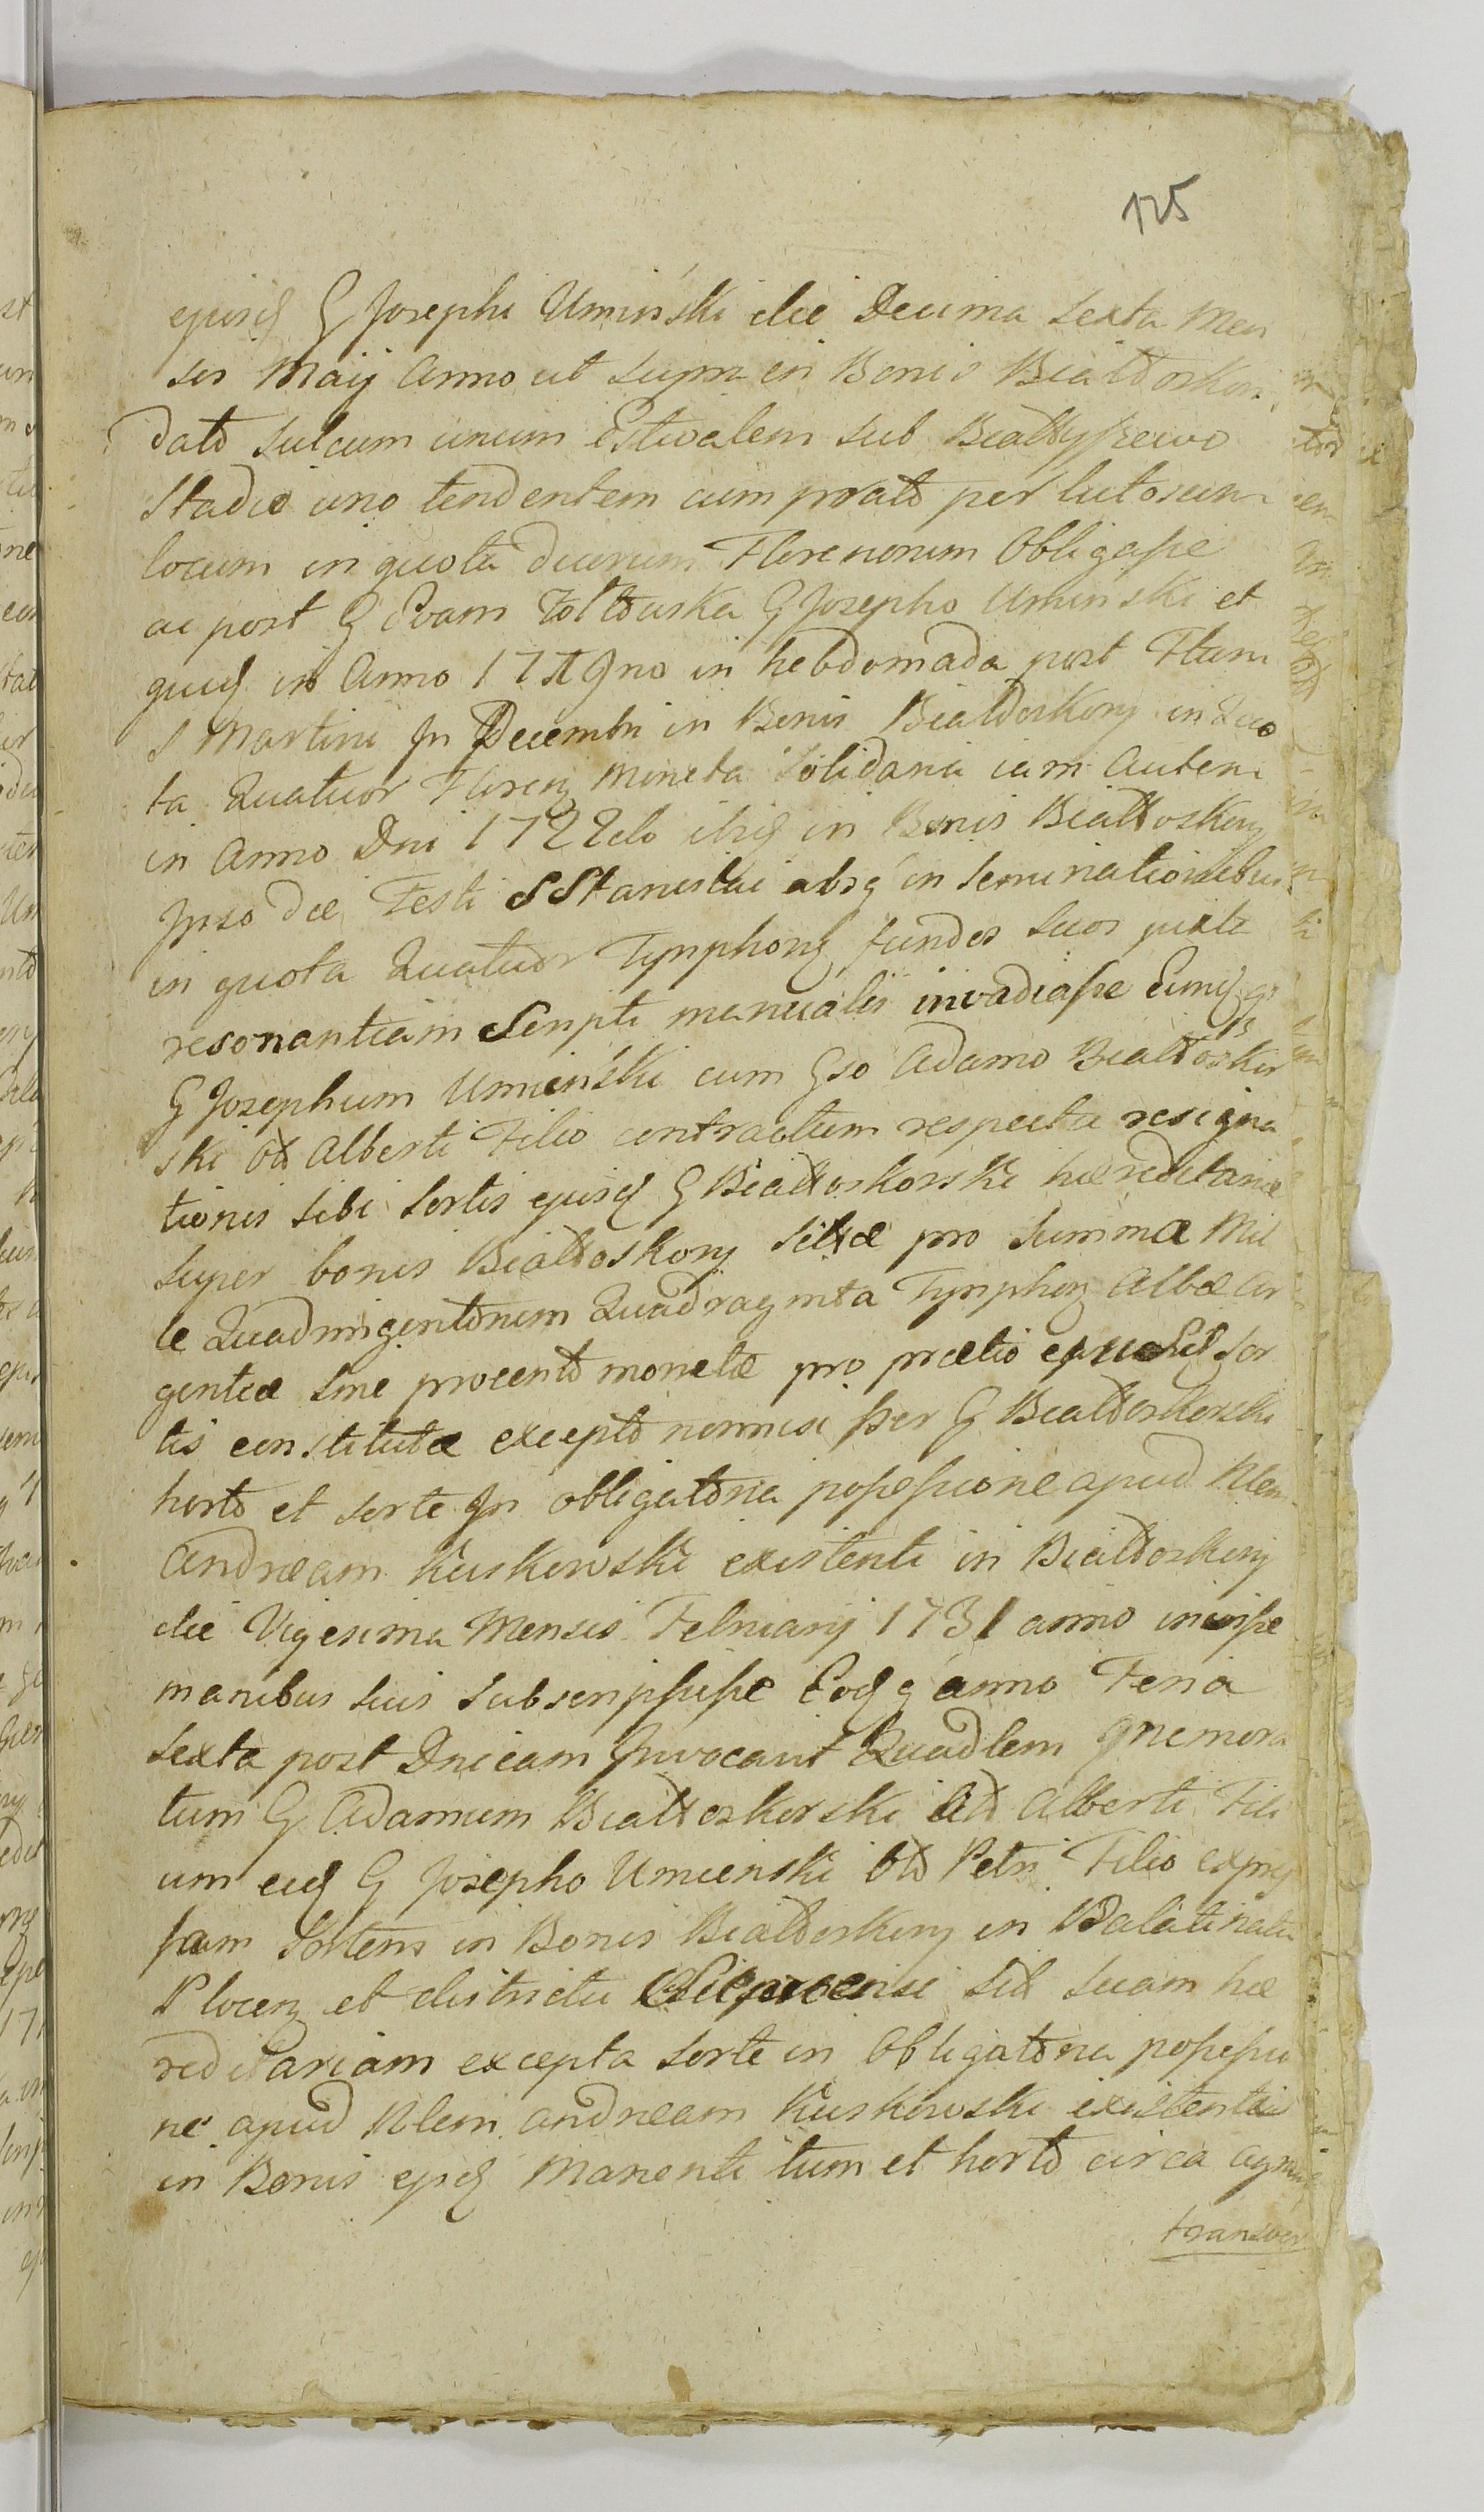 125
ejusd G Josephi Umiński die Decima Sexta Men
sis Maij Anno ut supra in Bonis Białłoskory
dato sulcum unum Estivalem sub Białłypiewo
Stadio uno tendentem cum prato per lutosum
locum in quota duorum Florenorum Obligasse
ac post G Evam Żołtowska G Josepho Uminski et
quid in Anno 17 gno in hebdomada post Ftum
S Martini In Decembri in Bonis Białłoskory in Quo
ta Quatuor Floren Moneta Solidaria iam autem
in Anno Dni 1722do ibid in Bonis Białłoskory
Ipso die Festi S Stanislai absq inseminationibus
in quota Quatuor Tynphony fundos suos juxta
resonantiam Scripti manualis invadiasse Eund
G Josephum Umieński cum Gso Adamo Białłoskor
ski Od Alberti Filio contractum respectu resigna
tionis sibi Sortis ejusd G Białłoskorski hæreditariæ
super bonis Białłoskory sitæ pro summa Mil
le Quadringentorum Quadraginta Tynphon Albæ Ar
genteæ sine procento monetæ pro prætio ejusd Sor
tis constitutæ excepto nonnisi per G Białłoskorski
horto et sorte In obligatoria possessione apud Nlem
Andream Kuskowski existenti in Białłoskory
die Vigesima Mensis Februarij 1731 anno inivisse
manibus suis subscripsisse Eodq anno Feria
sexta post Dnicam Invocavit Quadlem qnemora
tum G Adamum Białłoskorski Od Alberti Fili
um eid G Josepho Umieński Od Petri Filio expres
sam Sortem in Bonis Białłoskory in Palatinatu
Plocen et districtu sit suam hæ
reditariam excepta sorte in Obligatoria possessio
ne apud Nlem Andream Kuskowski existenti
in Bonis ejusd Manenti tum et horto circa agrum
transver